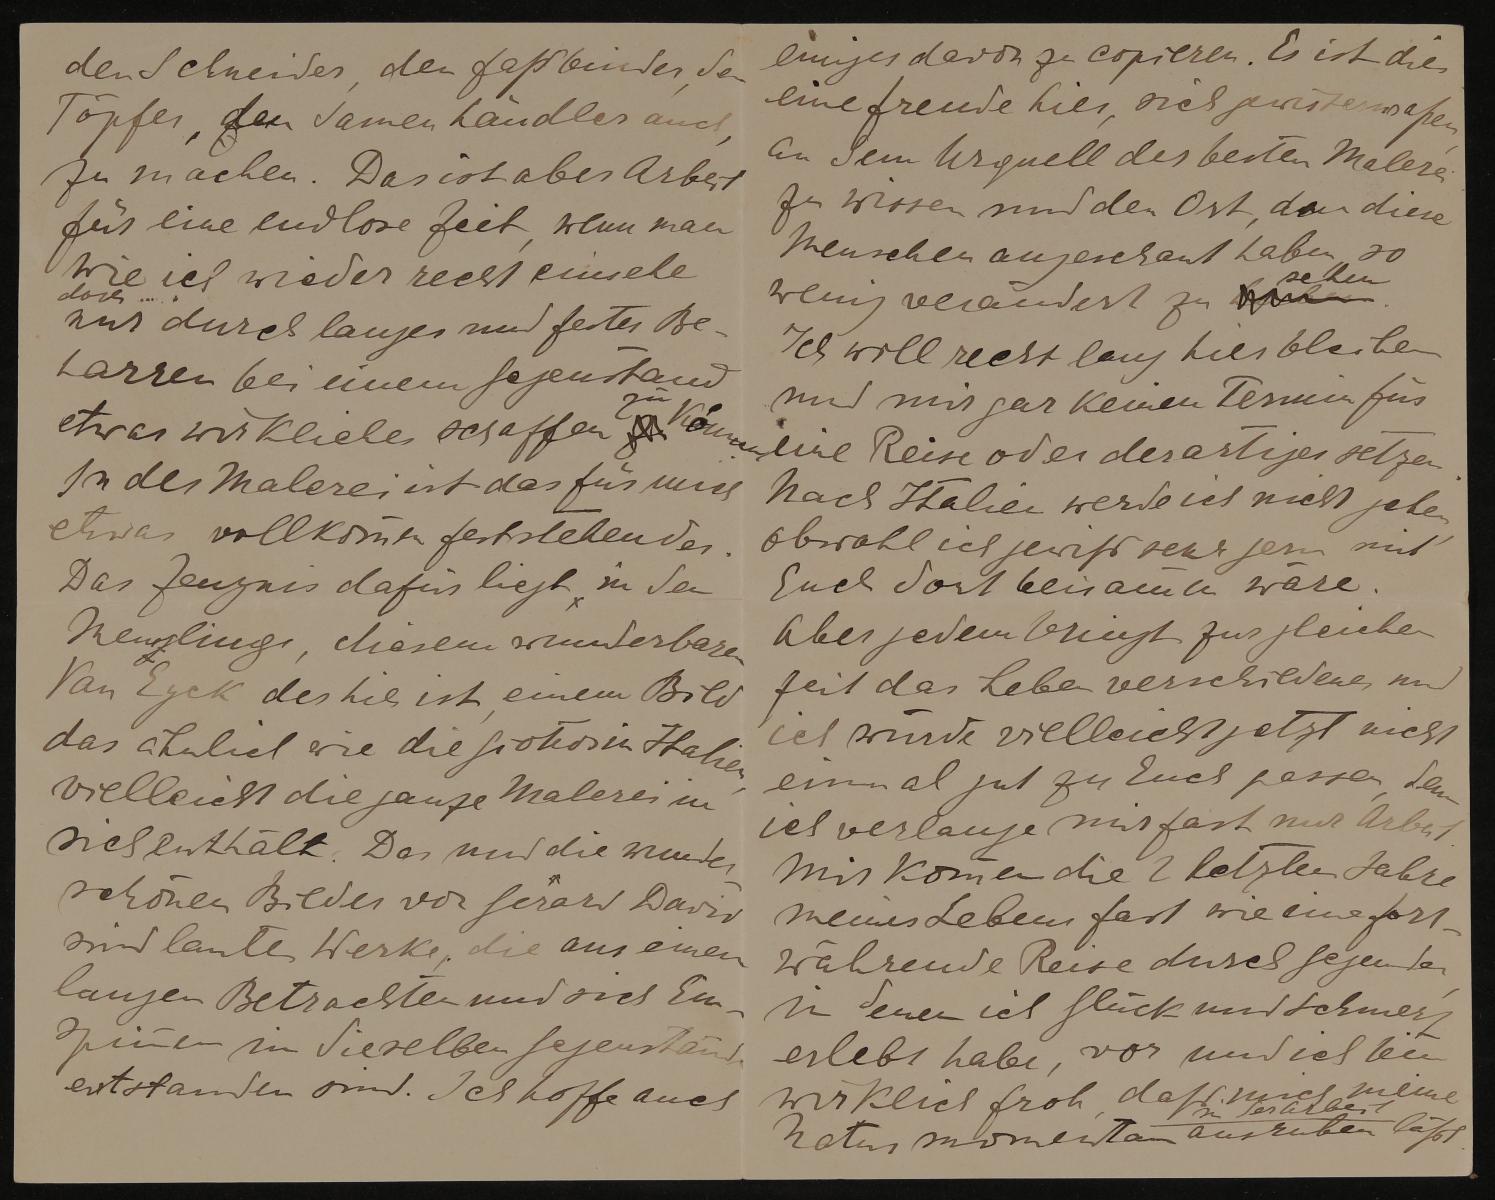 den Schneider, den Faßbinder, den
Töpfer, den Samenhändler auch,
zu machen. Das ist aber Arbeit
für eine endlose Zeit, wenn man
wie ich wieder recht einsehe
doch
nur durch langes und festes Be-
harren bei einem Gegenstand
etwas wirkliches schaffen zu können
In der Malerei ist das für mich
etwas vollkom̄en feststehendes.
Das Zeugnis dafür liegt in den
Memlings, diesem wunderbaren
Van Eyck der hier ist, einem Bild
das ähnlich wie die Giottos in Italien,
vielleicht die ganze Malerei in
sich enthält. Das und die wunder
schönen Bilder von Gérard David
sind lauter Werke, die aus einem
langen Betrachten und sich Ein-
spin̄en in dieselben Gegenstände
entstanden sind. Ich hoffe auch
einiges davon zu copieren. Es ist dies
eine Freude hier, sich gewissermaßen
an dem Urquell der besten Malerei
zu wissen und den Ort, den diese
Menschen angeschaut haben, so
wenig verändert zu sehen.
Ich will recht lang hier bleiben
und mir gar keinen Termin für
eine Reise oder derartiges setzen.
Nach Italien werde ich nicht gehen,
obwohl ich gewiß sehr gern mit
Euch dort beisam̄en wäre.
Aber jedem bringt zur gleichen
Zeit das Leben verschiedenes und
ich würde vielleicht jetzt nicht
einmal gut zu Euch passen, denn
ich verlange mir fast nur Arbeit.
Mir kom̄en die 2 letzten Jahre
meines Lebens fast wie eine fort-
währende Reise durch Gegenden,
in denen ich Glück und Schmerz
erlebt habe, vor und ich bin
wirklich froh, daß mich meine
Natur momentan in der Arbeit ausruhen läßt.